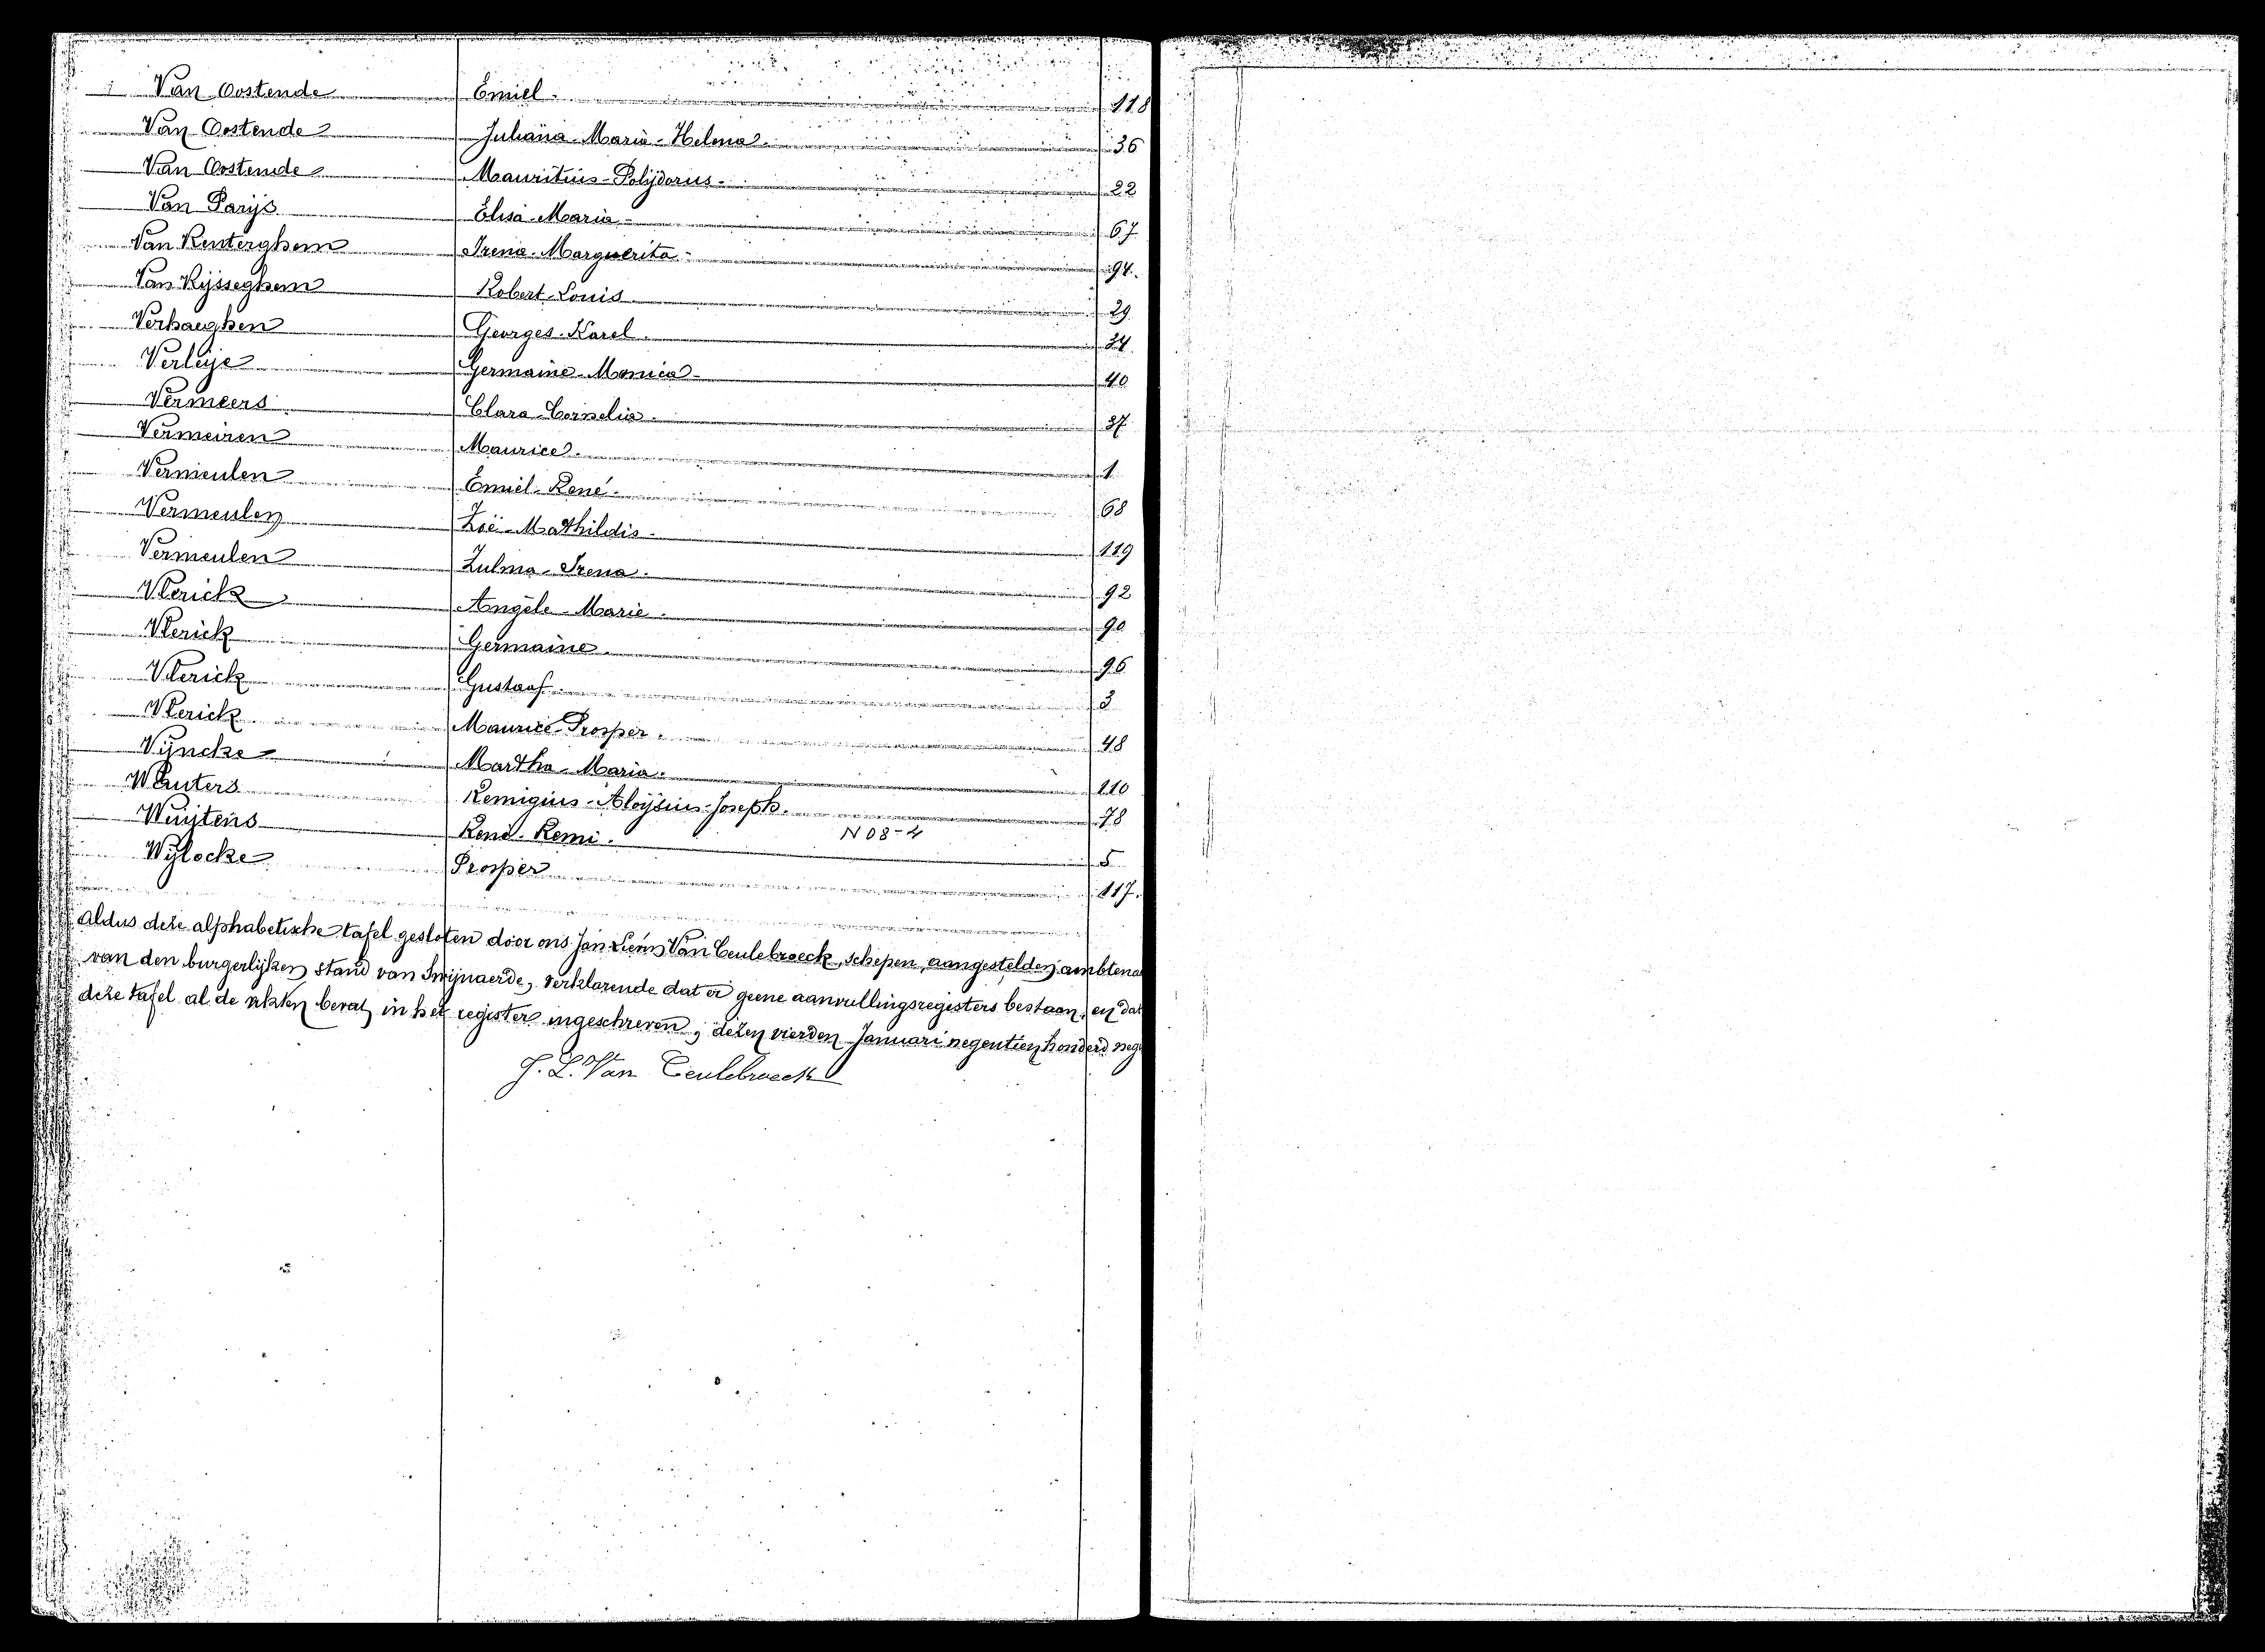 Van Oostende Emiel. 118
Van Oostende Juliana-Maria-Helena. 36
Van Oostende Mauritius-Polijdorus. 22
Van Parijs Elisa-Maria 67
Van Renterghem Irena-Marguerita 94.
Van Rijsseghem Robert-Louis 29
Verhaeghen Georges-Karel. 34
Verleije Germaine-Monica 40
Vermeers Clara-Cornelia. 37
Vermeiren Maurice. 1
Vermeulen Emiel-René. 68
Vermeulen Zoë-Mathildis 119
Vermeulen Zulma-Irena. 92
Vlerick Angèle-Marie. 90
Vlerick Germaine. 96
Vlerick Gustaaf. 3
Vlerick Maurice-Prosper. 48
Vijncke Martha-Maria. 110
Wauters Remigius-Aloijsius-Joseph. 78
Wuijtens René-Remi. N 08-4 5
Wijlocke Prosper 117.
Aldus deze alphabetische tafel gesloten door ons Jan Van Ceulebroeck, schepen, aangestelden ambtena
van den burgerlijken stand van Swijnaerde, verklarende dat er geene aanvullingsregisters bestaan, en dat
deze tafel al de akten bevat, in het register ingeschreven; dezen vierden Januari negentien honderd neg
J. L. Van Ceulebroeck